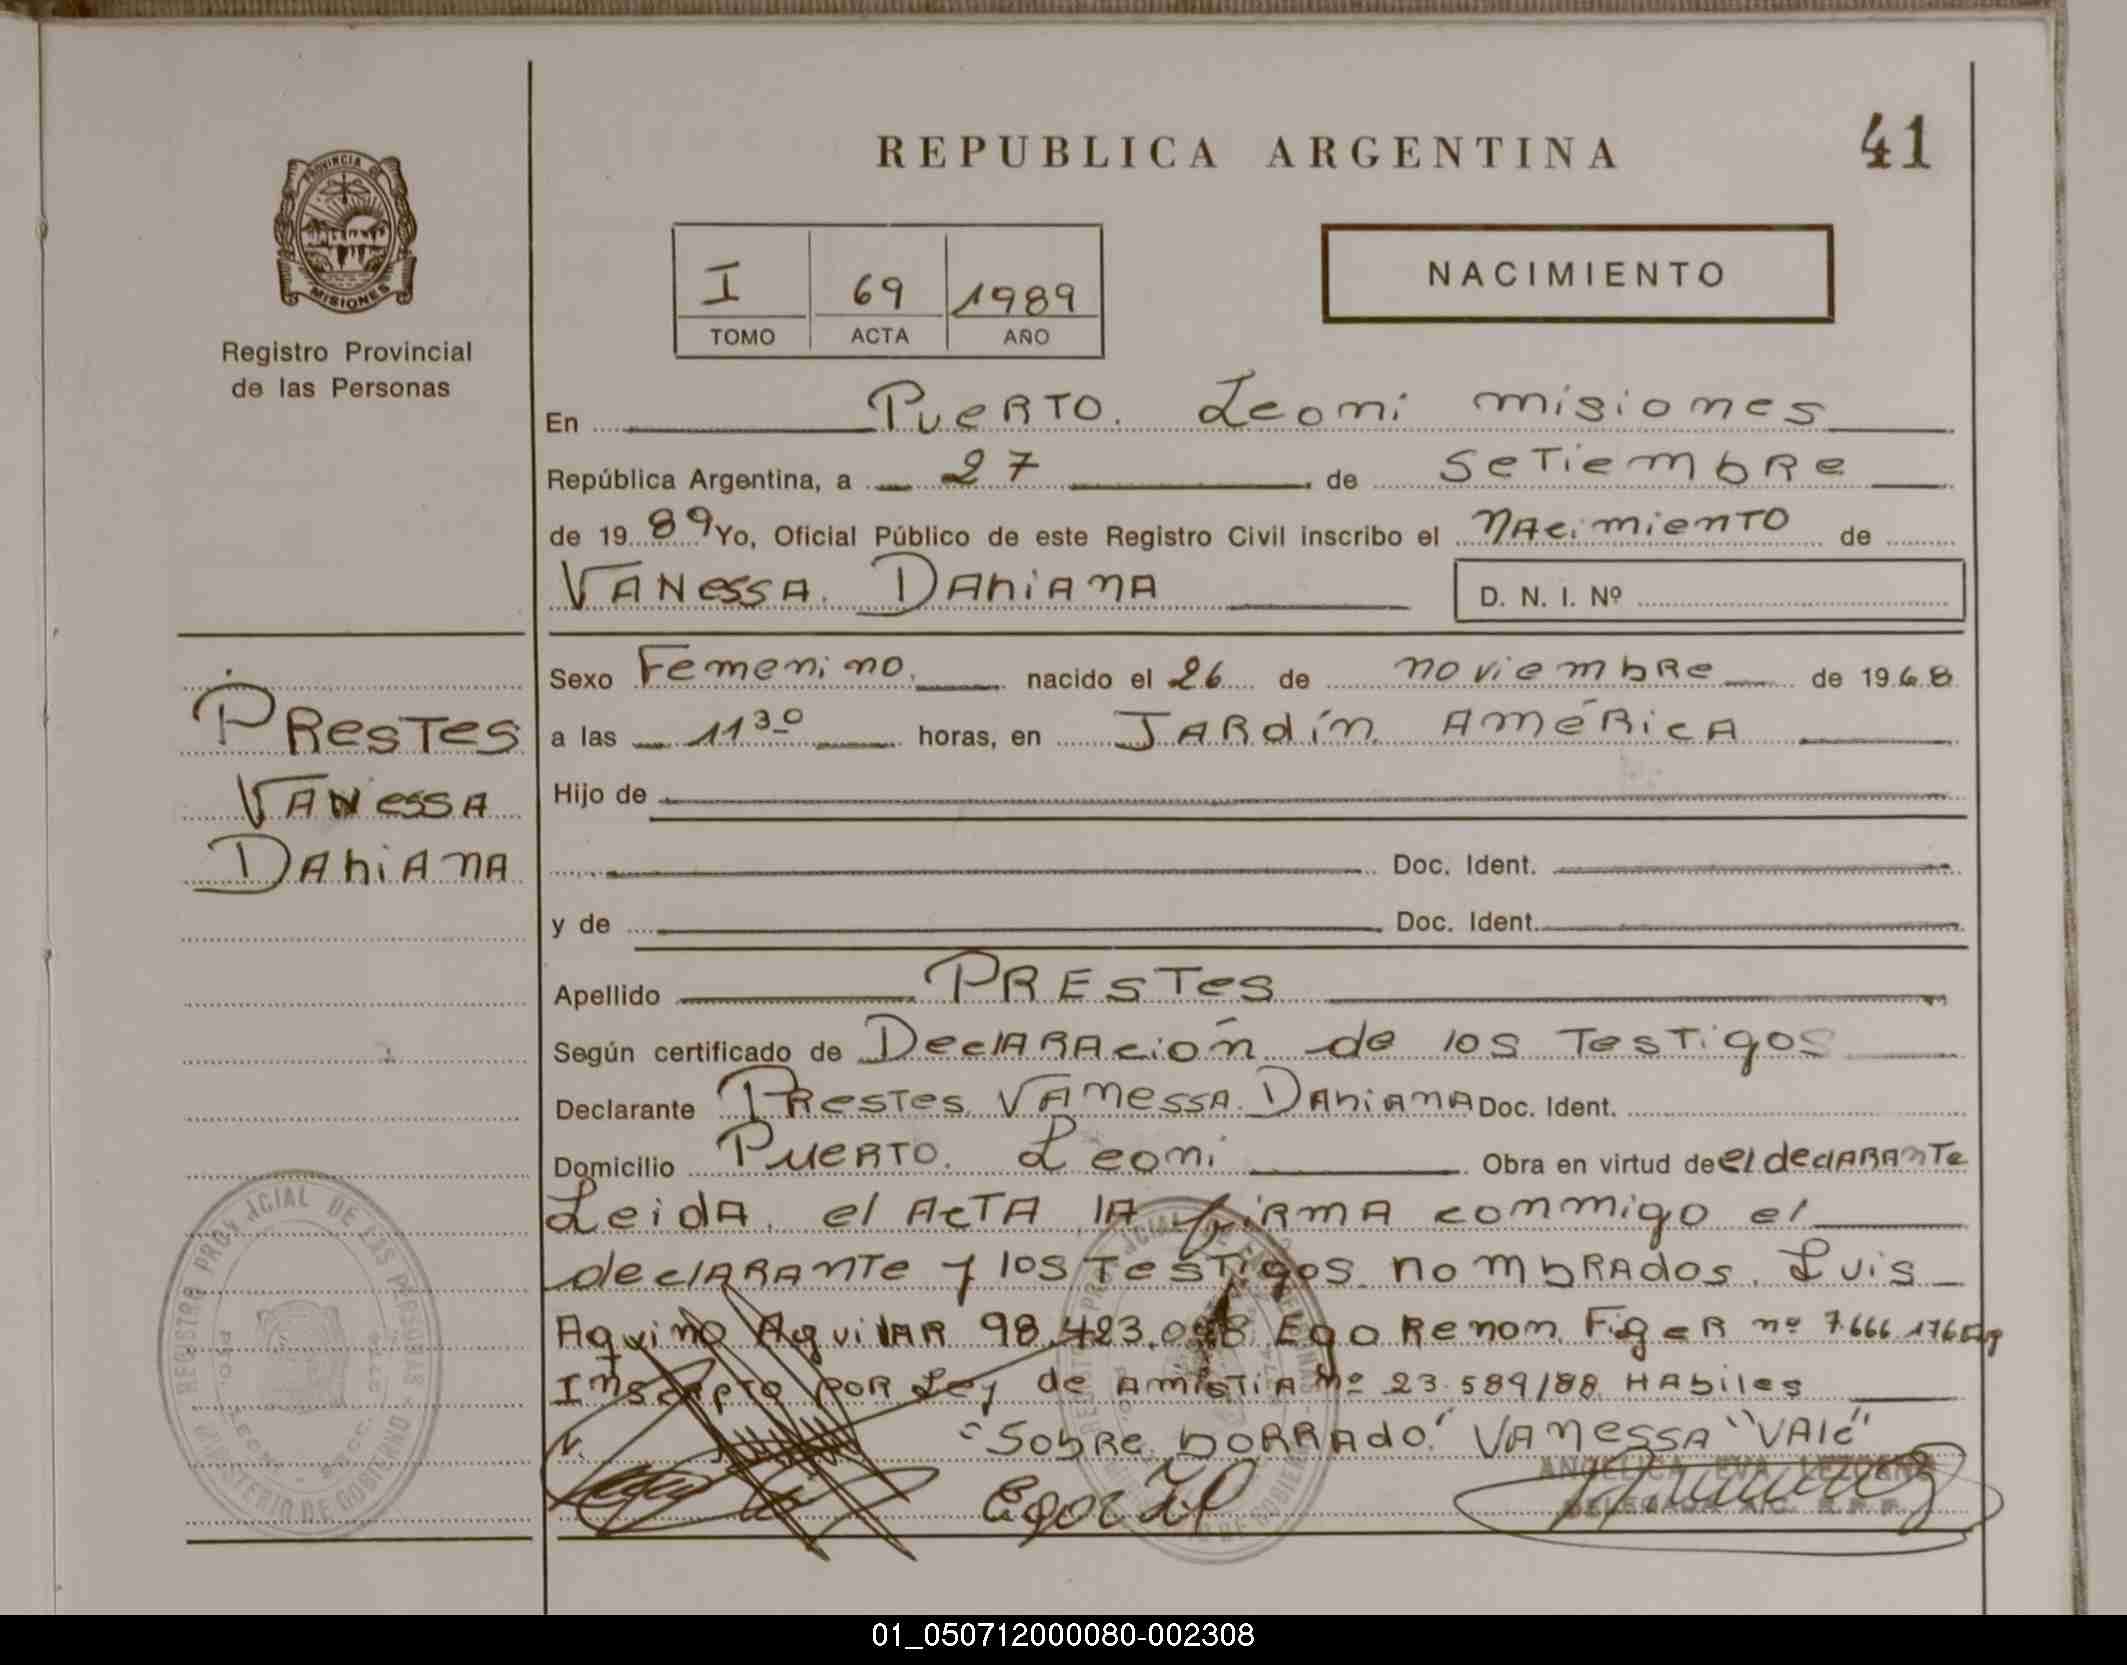 REPUBLICA ARGENTINA
41
PROVINCIA DE
MISIONES
Registro Provincial
de las Personas
I 69 1989
TOMO ACTA AÑO
NACIMIENTO
En Puerto Leoni misiones
República Argentina, a 27 de Setiembre
de 1989 Yo, Oficial Público de este Registro Civil inscribo el nacimiento de
Vanessa Dahiana D. N. I. Nº
Prestes
Vanessa
Dahiana
Sexo Femenino nacido el 26 de noviembre de 1968
a las 11 30 horas, en Jardín América
Hijo de
Doc. Ident.
y de Doc. Ident.
Apellido Prestes
Según certificado de Declaración de los Testigos
Declarante Prestes Vanessa Dahiana Doc. Ident.
Domicilio Puerto Leoni Obra en virtud de el declarante
Leida el acta la firma conmigo el
declarante y los testigos nombrados Luis
Aquino Aguilar 98.423.098 Ego Renon Figer nº 7.666.176
Inscripto por Ley de amistia nº 23.589/88 Habiles
"Sobre borrado" Vanessa "Vale"
REGISTRO PROVINCIAL DE LAS PERSONAS
MINISTERIO DE GOBIERNO
PCIAL DE
ANGELICA EVA
DELEGADA
01_050712000080-002308